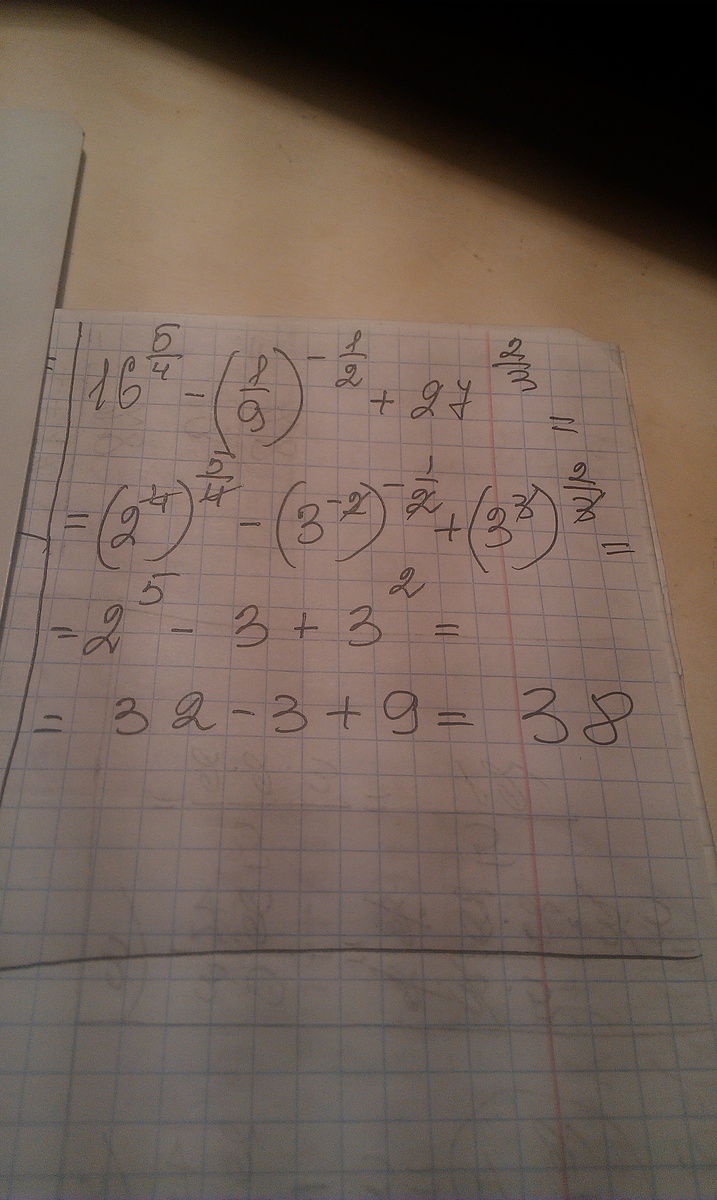 16^{5/4} - (1/9)^{-1/2} + 27^{2/3} =
= (2^4)^{5/4} - (3^{-2})^{-1/2} + (3^3)^{2/3} =
= 2^5 - 3 + 3^2 =
= 32 - 3 + 9 = 38